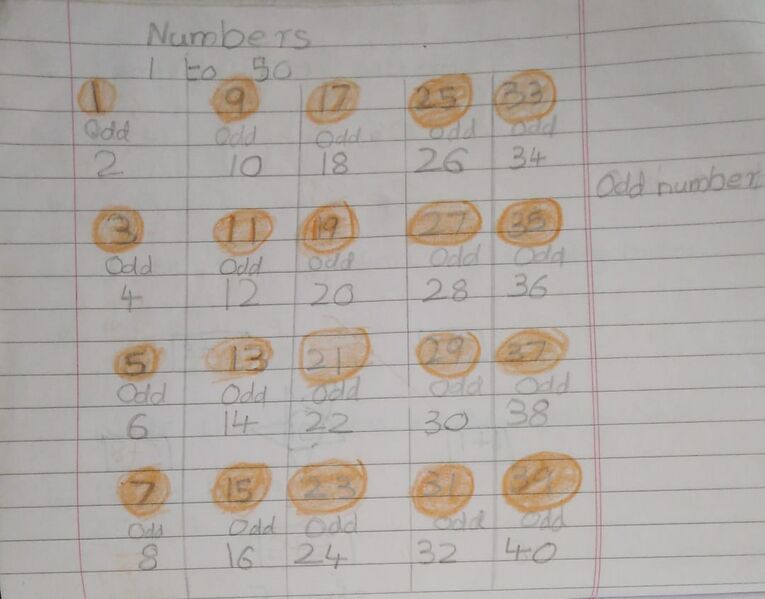 Numbers
1 to 50
1 9 17 25 33
Odd Odd Odd Odd Odd
2 10 18 26 34
Odd number
3 11 19 27 35
Odd Odd Odd Odd Odd
4 12 20 28 36
5 13 21 29 37
Odd Odd Odd Odd Odd
6 14 22 30 38
7 15 23 31 39
Odd Odd Odd Odd Odd
8 16 24 32 40